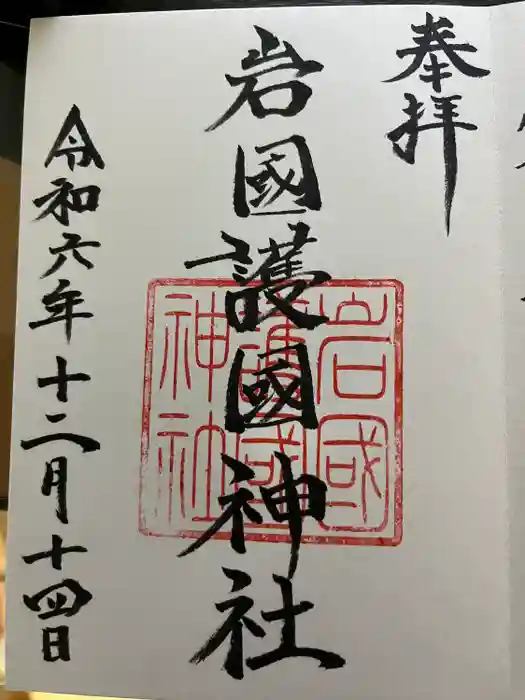 奉拝
岩國護國神社
岩國
護國
神社
令和六年十二月十四日